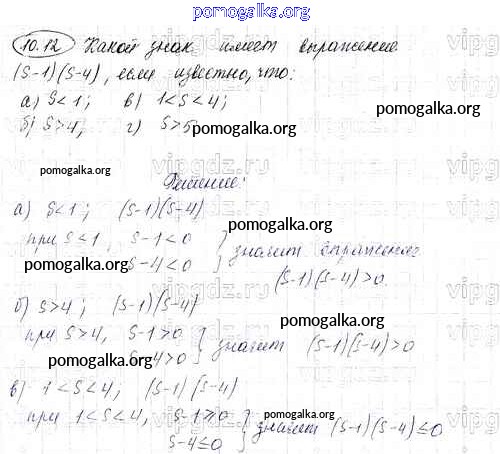 pomogalka.org
10.12 Какой знак имеет выражение
(S-1)(S-4), если известно, что:
а) S<1; в) 1<S<4;
pomogalka.org
б) S>4, г) S>5
pomogalka.org
vipgdz.ru
pomogalka.org
Решение:
а) S<1; (S-1)(S-4)
pomogalka.org
при S<1, S-1<0 } значит выражение
pomogalka.org S-4<0
(S-1)(S-4)>0.
б) S>4; (S-1)(S-4)
pomogalka.org
при S>4, S-1>0 } значит (S-1)(S-4)>0
pomogalka.org S-4>0
в) 1<S<4, (S-1)(S-4)
pomogalka.org
при 1<S<4, S-1≥0 } значит (S-1)(S-4)≤0
S-4≤0
pomogalka.org